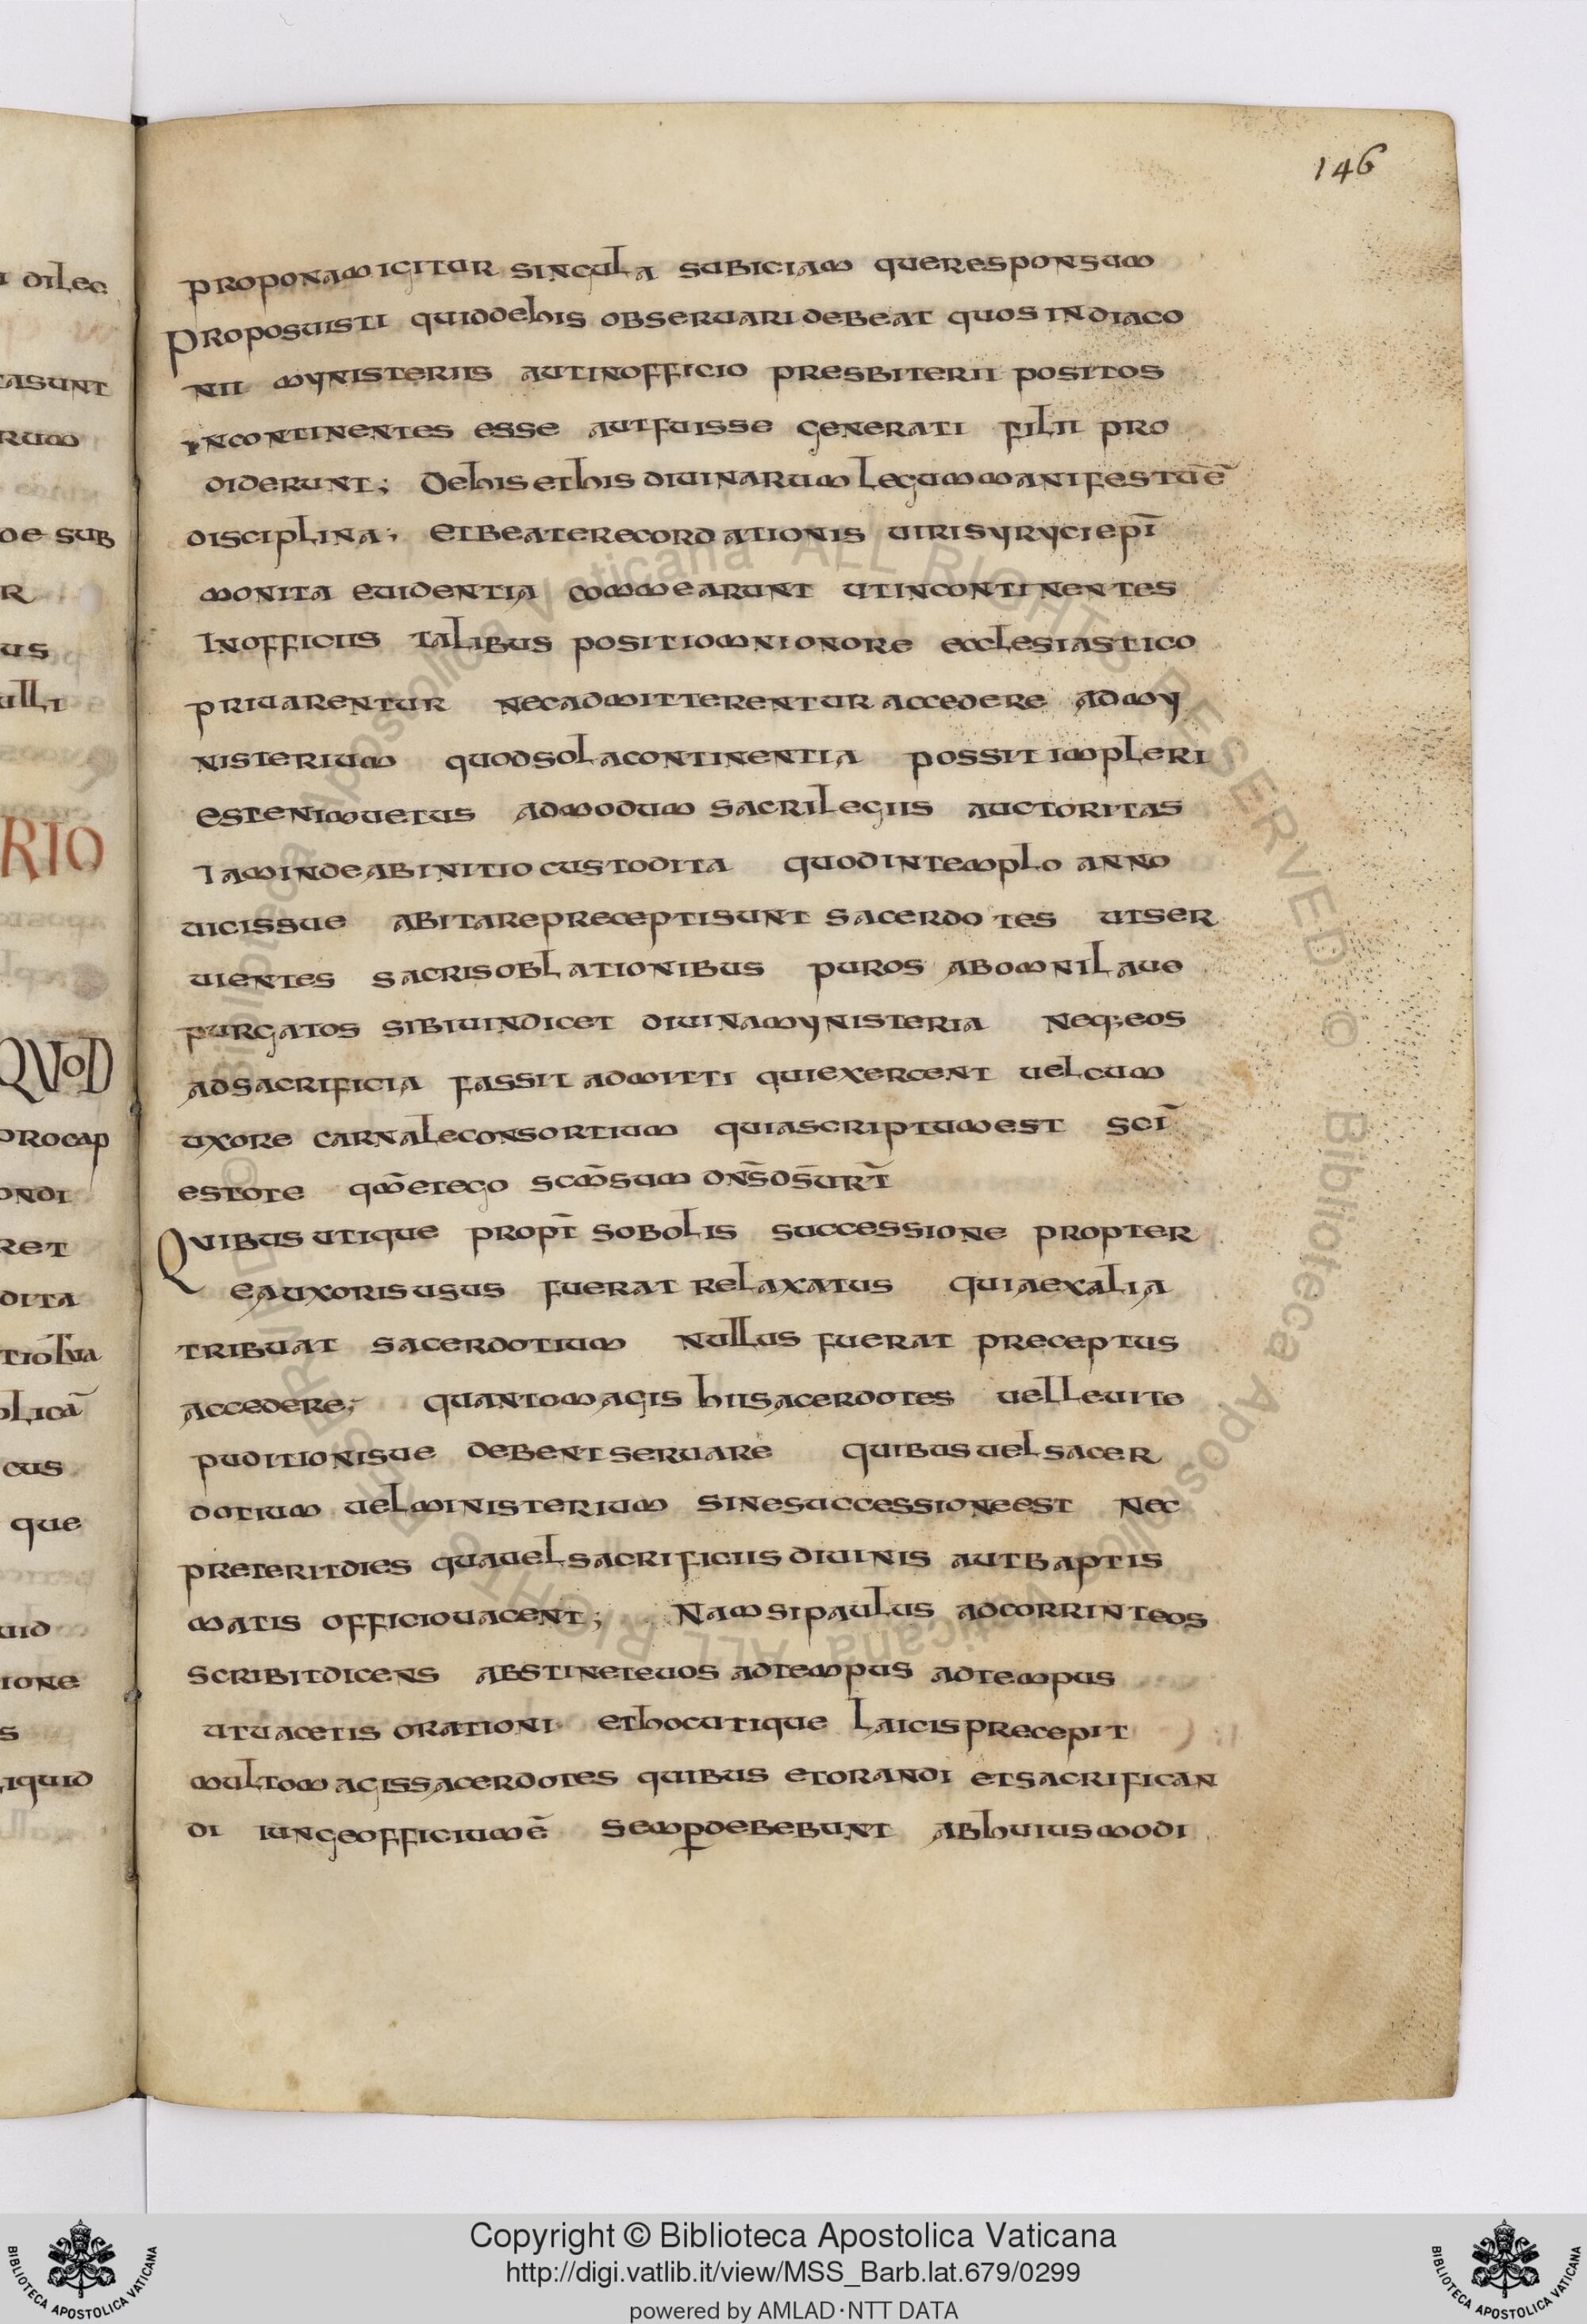 146
proponam igitur singula subiciam queresponsum
Proposuisti quiddehis observari debeat quos in diaco
nii mynisteriis autinofficio presbiterii positos
incontinentes esse autfuisse generati filii pro
diderunt; Dehis ethis divinarum legum manifestū ē
disciplina; et beate recordationis viri syryci epī
monita evidentia commearunt ut incontinentes
In officiis talibus positi omni onore ecclesiastico
privarentur nec admitterentur accedere admy
nisterium quod sola continentia possit impleri
est enim vetus admodum sacrilegiis auctoritas
Iam inde ab initio custodita quod in templo anno
vicissue abitare precepti sunt sacerdotes ut ser
vientes sacris oblationibus puros ab omni laue
purgatos sibi vindicet divina mynisteria Neq; eos
ad sacrificia fassit admitti qui exercent vel cum
uxore carnale consortium quia scriptum est scī
estote qm̄ et ego scm̄ sum dn̄s ds̄ urī
Quibus utique propt̄ sobolis successione propter
ea uxoris usus fuerat relaxatus quia ex alia
tribuat sacerdotium nullus fuerat preceptus
accedere; quanto magis hii sacerdotes vel levite
puditionisue debent servare quibus vel sacer
dotium vel ministerium sine successione est Nec
preterit dies qua vel sacrificiis divinis aut baptis
matis officio vacent; Nam si paulus ad corrinteos
scribit dicens abstinete vos ad tempus ad tempus
ut vacetis orationi et hoc utique laicis precepit
multo magis sacerdotes quibus et orandi et sacrifican
di iunge officium ē semp debebunt ab huiusmodi
Copyright © Biblioteca Apostolica Vaticana
http://digi.vatlib.it/view/MSS_Barb.lat.679/0299
powered by AMLAD·NTT DATA